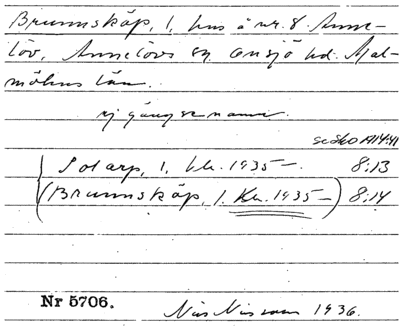 Brunnskåp, l. hus å nr. 8. Anne-
löv, Annelövs sn Onsjö hd. Mal-
möhus län.
ej gängse namn.
se SkO A14:41
Solarp, l. kk. 1935—. 8:13
(Brunnskåp, l. Kk. 1935—) 8:14
Nr 5706.
Nils Nilsson 1936.